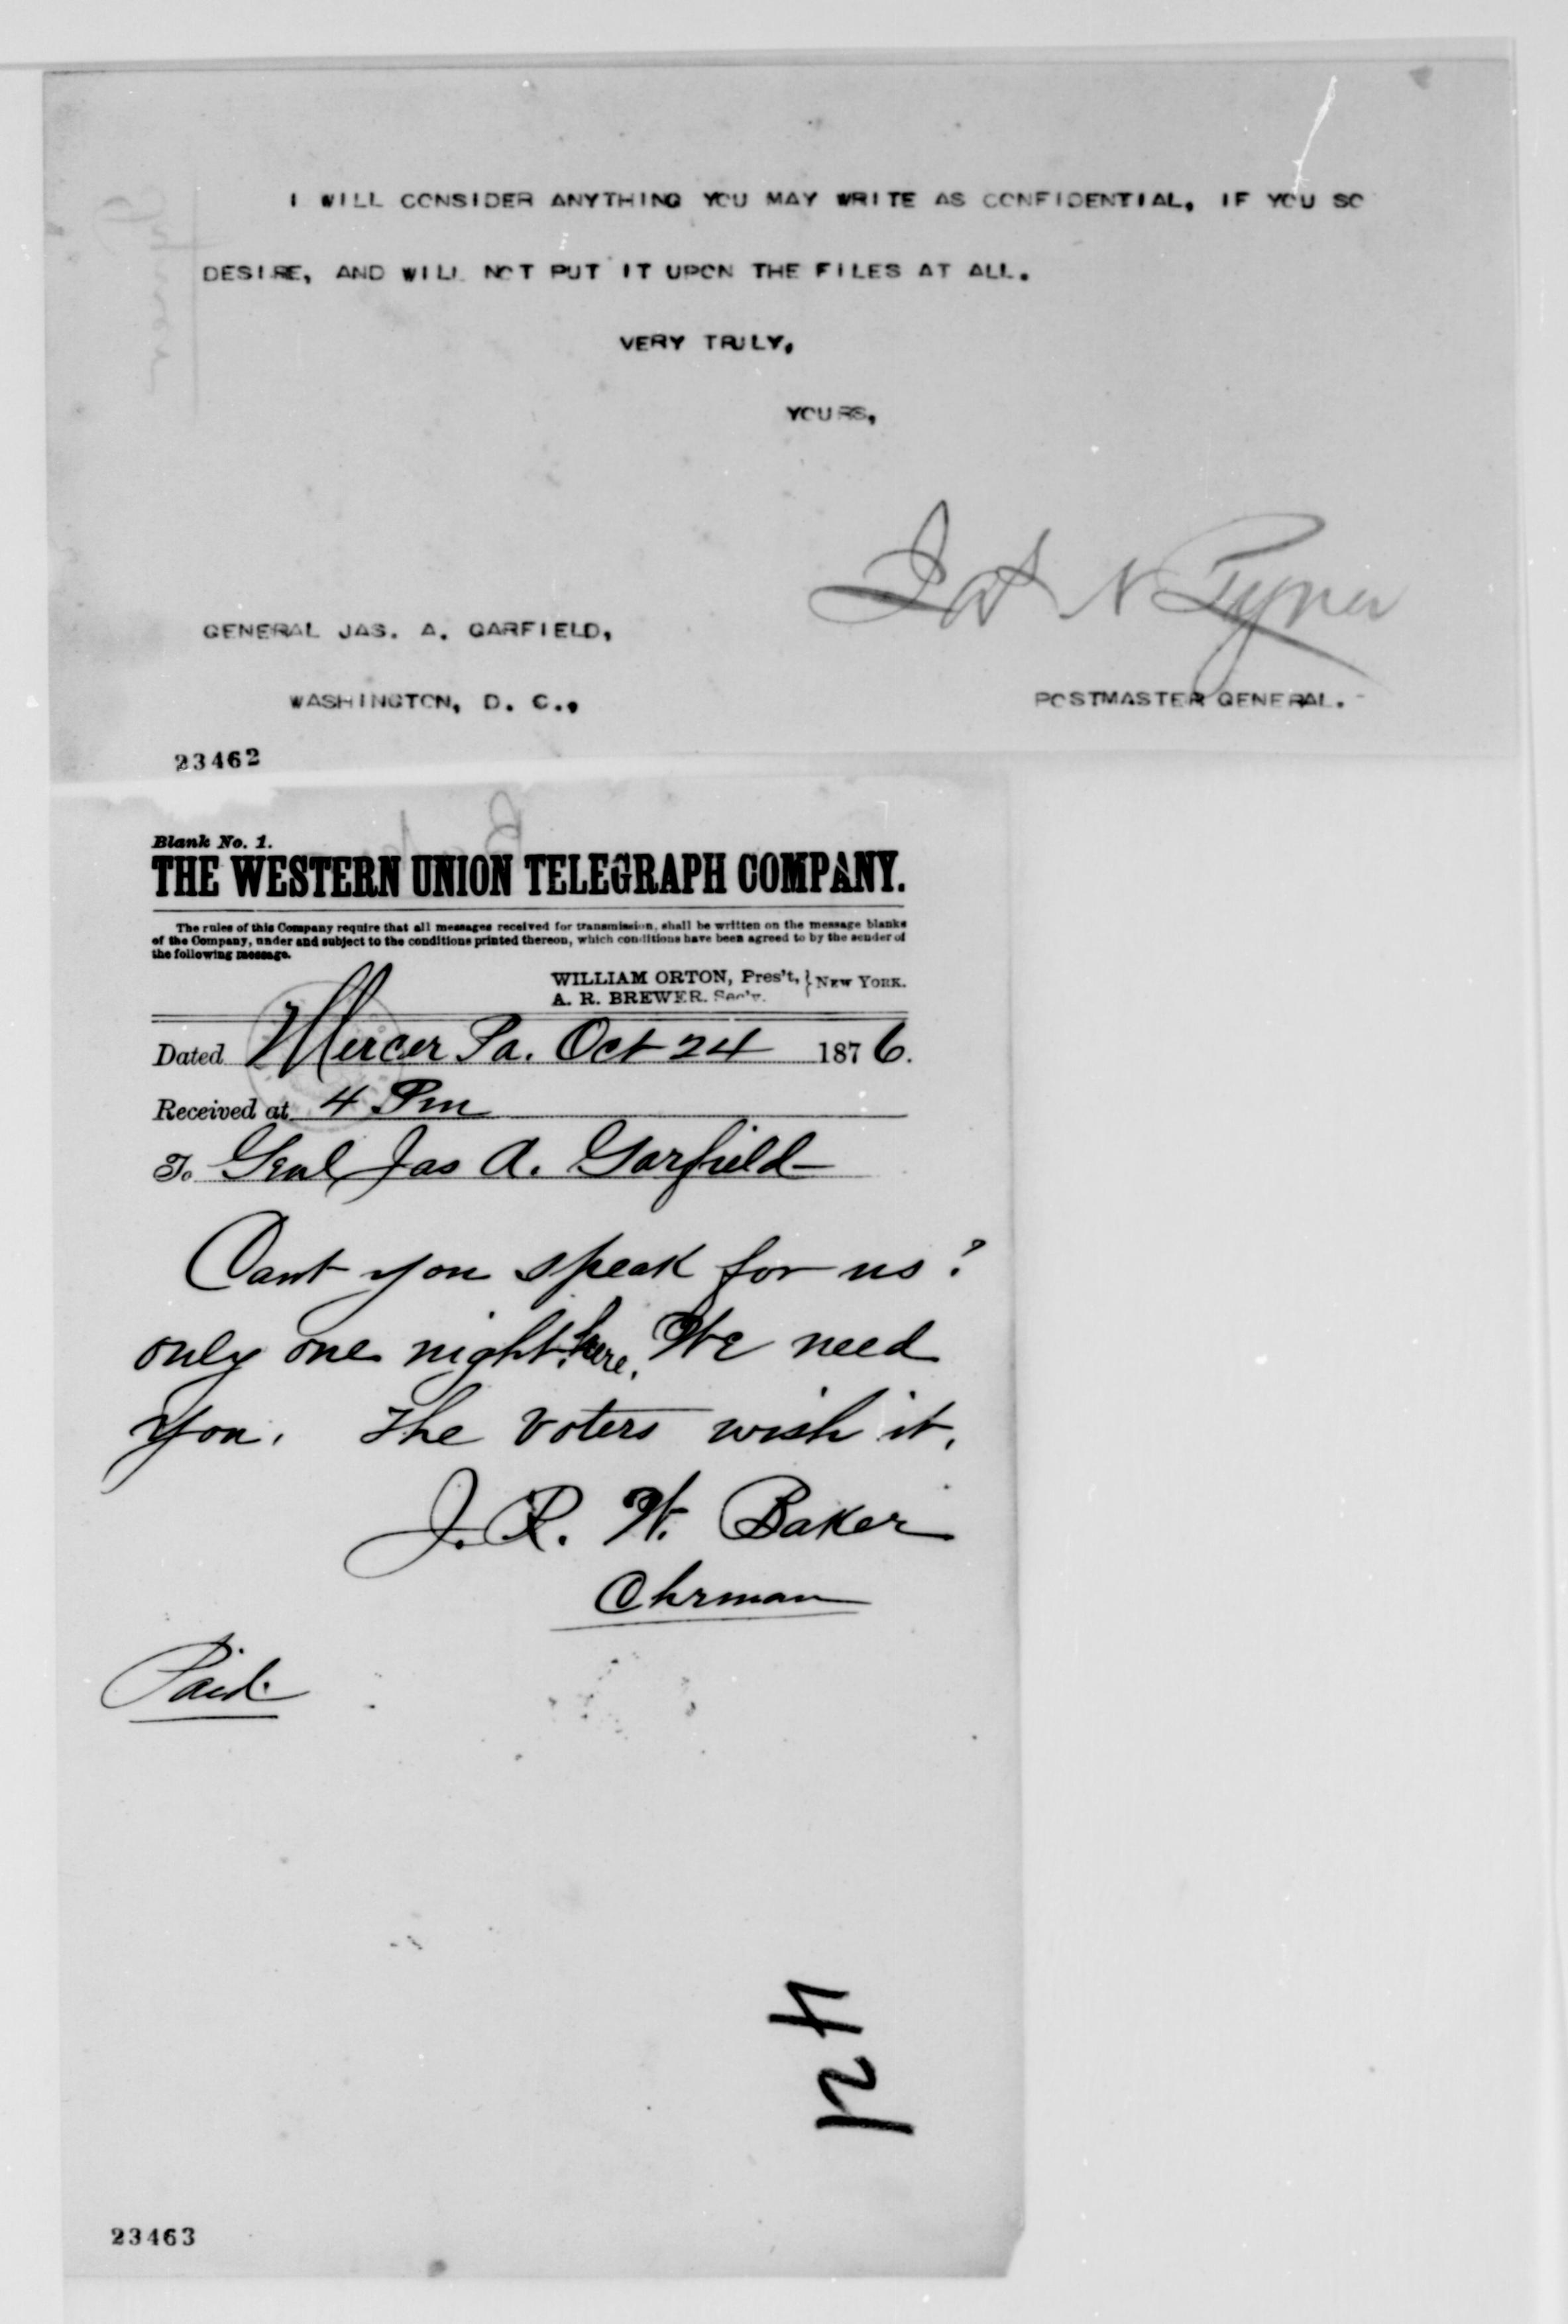 I WILL CONSIDER ANYTHING YOU MAY WRITE AS CONFIDENTIAL, IF YOU SO
DESIRE, AND WILL NOT PUT IT UPON THE FILES AT ALL.
VERY TRULY,
YOURS,
Jas N Tyner
GENERAL JAS. A. GARFIELD,
WASHINGTON, D. C.,
POSTMASTER GENERAL.
23462
Blank No. 1.
THE WESTERN UNION TELEGRAPH COMPANY.
The rules of this Company require that all messages received for transmission, shall be written on the message blanks
of the Company, under and subject to the conditions printed thereon, which conditions have been agreed to by the sender of
the following message.
WILLIAM ORTON, Pres't, } NEW YORK.
A. R. BREWER, Sec'y.
Dated Mercer Pa. Oct 24 1876.
Received at 4 Pm
To Genl Jas A. Garfield
Cant you speak for us?
only one night here. We need
you. The voters wish it.
J. R. W. Baker
Chrman
Paid.
23463